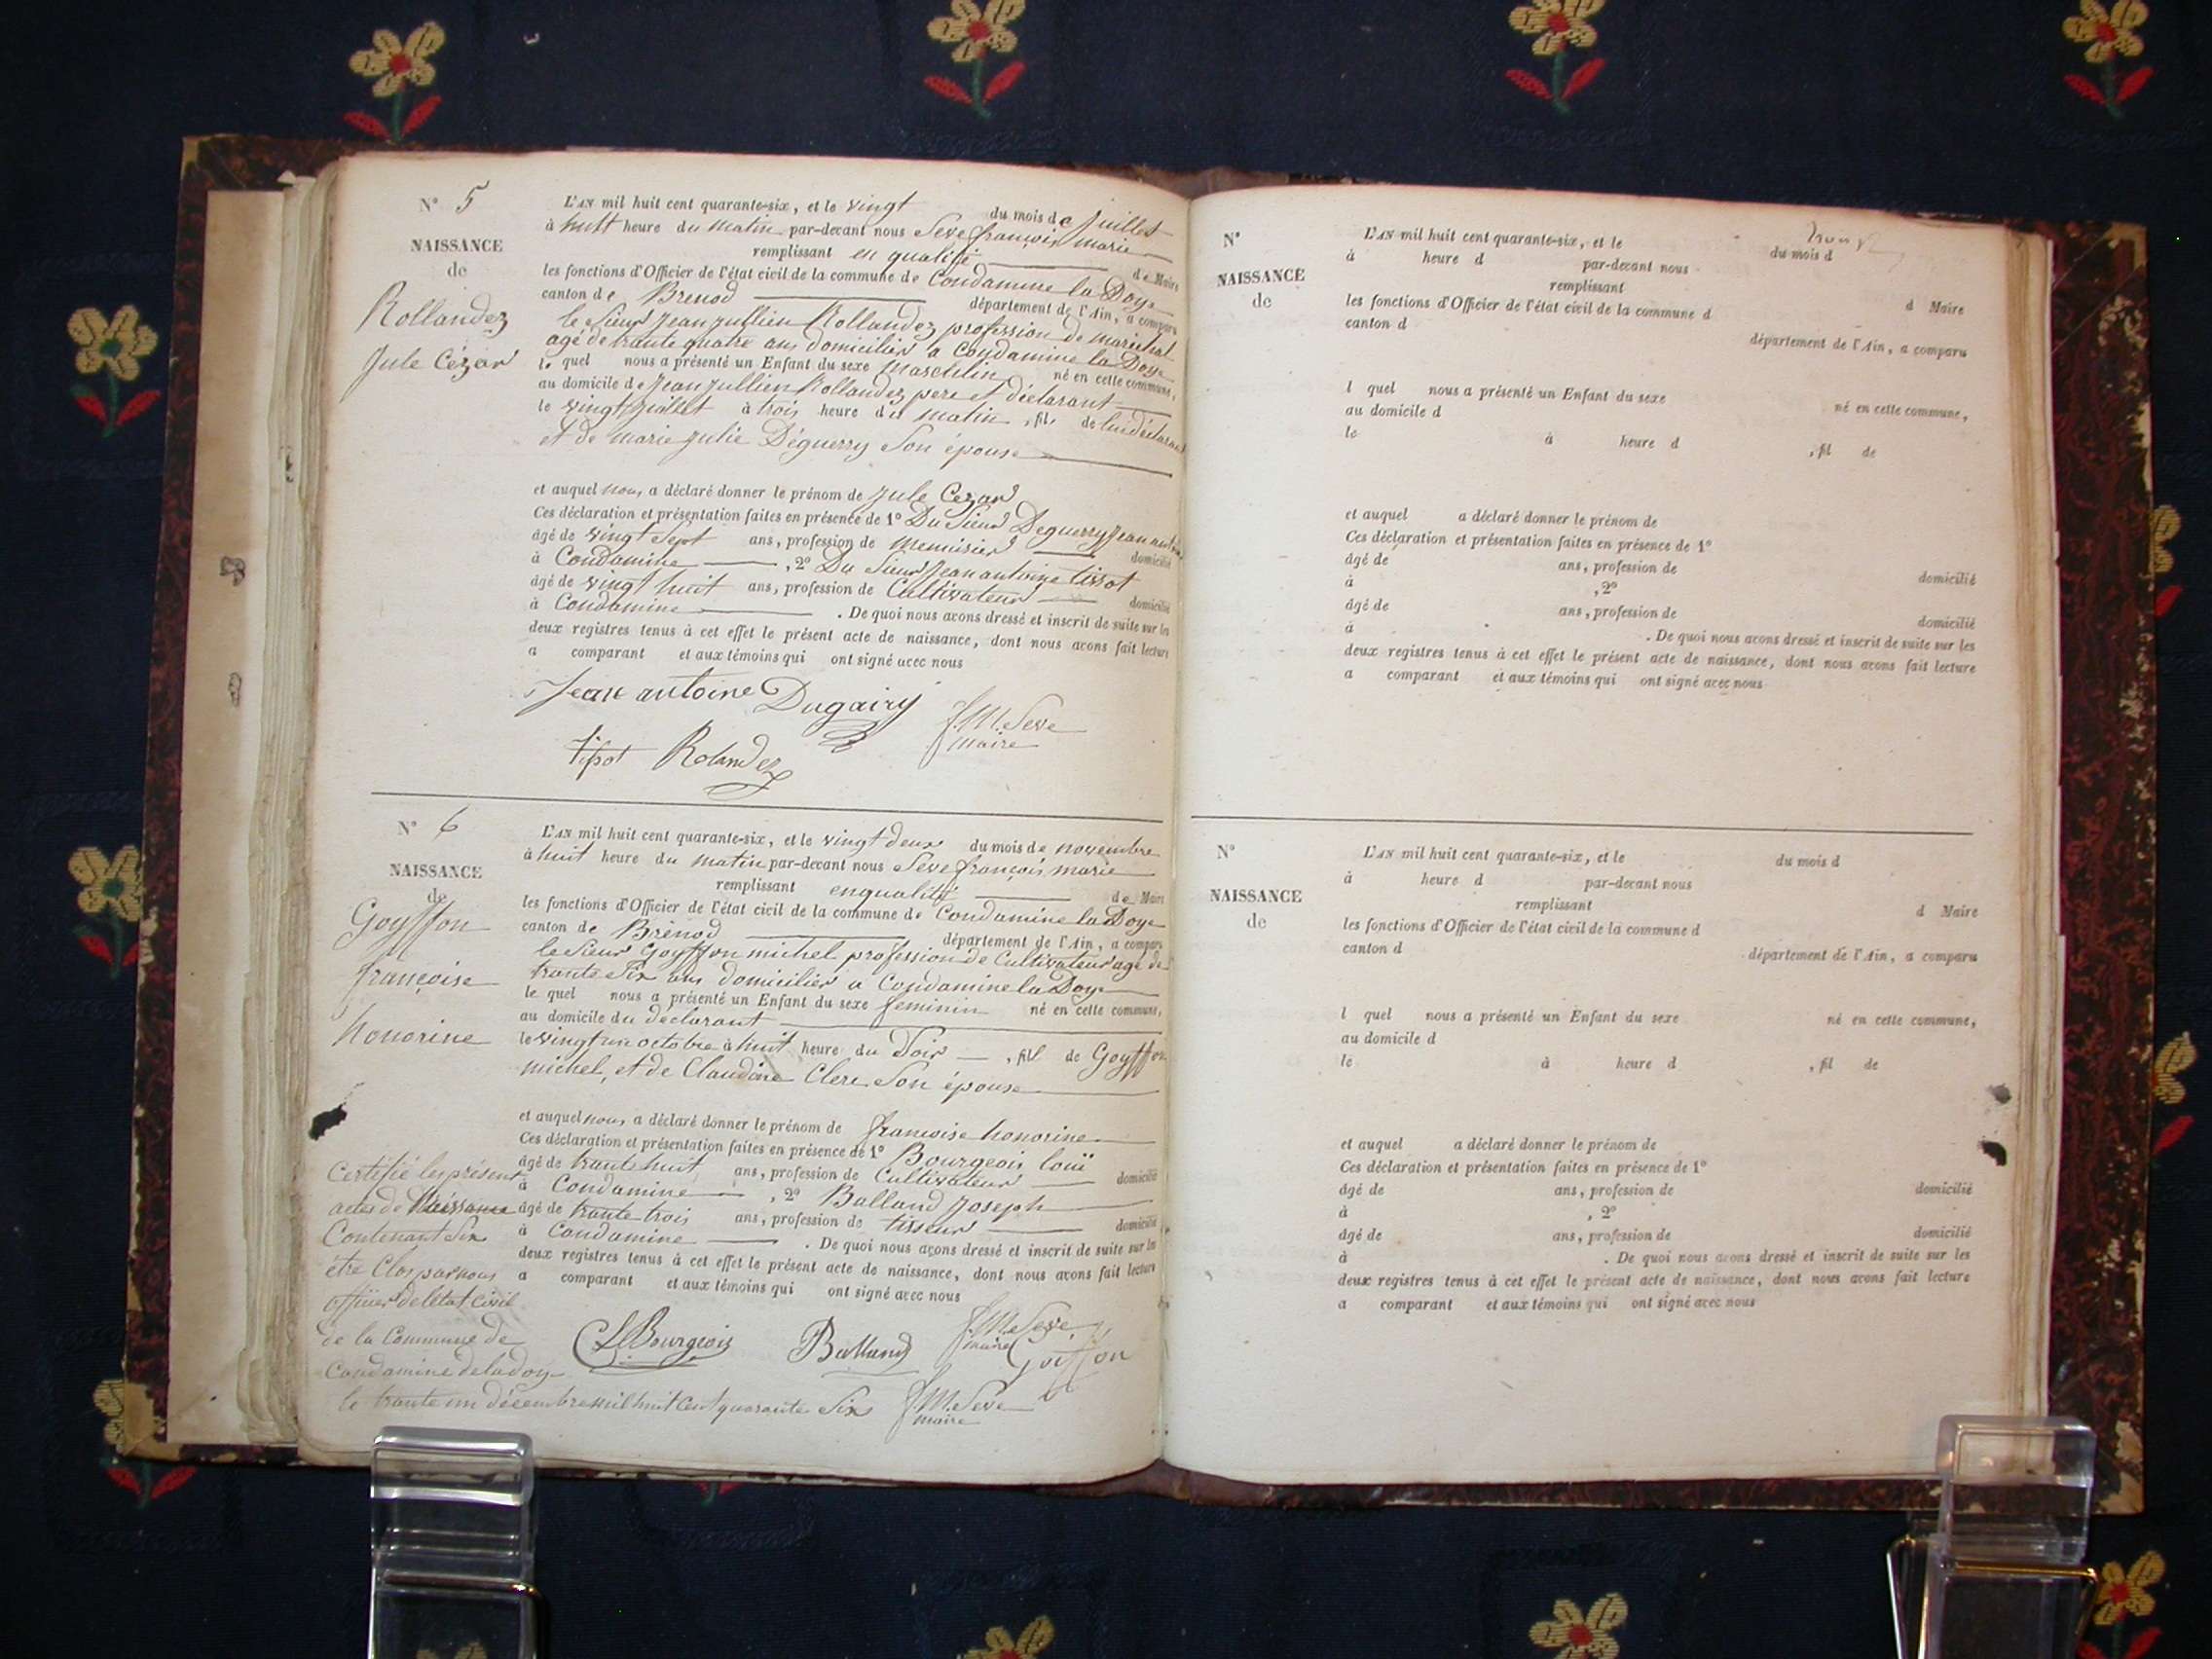 N° 5
NAISSANCE
de
Rollandez
Jule Cezar
L'AN mil huit cent quarante-six, et le vingt du mois de juillet
à huit heure du matin par-devant nous Seve françois marie
remplissant en qualité de Maire
les fonctions d'Officier de l'état civil de la commune de Condamine la Doye
canton de Brenod département de l'Ain, a comparu
le Sieur Jean jullien Rollandez profession de marechal
agé de trante quatre ans domicilier a Condamine la Doye
le quel nous a présenté un Enfant du sexe Masculin né en cette commune,
au domicile de Jean jullien Rollandez pere et déclarant
le vingt juillet à trois heure du matin, fils de lui déclarant
et de marie julie Déguerry Son épouse
et auquel nous a déclaré donner le prénom de Jule Cezar
Ces déclaration et présentation faites en présence de 1° Du Sieur Deguerry Jean antoine
âgé de vingt Sept ans, profession de menuisier domicilié
à Condamine, 2° Du Sieur Jean antoine tissot
âgé de vingt huit ans, profession de Cultivateur domicilié
à Condamine. De quoi nous avons dressé et inscrit de suite sur les
deux registres tenus à cet effet le présent acte de naissance, dont nous avons fait lecture
a comparant et aux témoins qui ont signé avec nous
Jean antoine Dugairy
f. M. Seve
maire
tissot Rolandez
N° 6
NAISSANCE
de
Goyffon
françoise
honorine
L'AN mil huit cent quarante-six, et le vingt deux du mois de novembre
à huit heure du matin par-devant nous Seve françois marie
remplissant enqualité de Maire
les fonctions d'Officier de l'état civil de la commune de Condamine la Doye
canton de Brénod département de l'Ain, a comparu
le Sieur Goyffon michel profession de Cultivateur agé de
trante Six ans domicilier a Condamine la Doye
le quel nous a présenté un Enfant du sexe feminin né en cette commune,
au domicile du déclarant
le vingt un octobre à huit heure du Soir, fil de Goyffon
michel, et de Claudine Clerc Son épouse
et auquel nous a déclaré donner le prénom de francoise honorine
Ces déclaration et présentation faites en présence de 1° Bourgeois louï
âgé de trante huit ans, profession de Cultivateur domicilié
à Condamine, 2° Balland Joseph
âgé de trante trois ans, profession de tisseur domicilié
à Condamine. De quoi nous avons dressé et inscrit de suite sur les
deux registres tenus à cet effet le présent acte de naissance, dont nous avons fait lecture
a comparant et aux témoins qui ont signé avec nous
Certifié les présent
actes de Naissance
Contenant Six
être Clos par nous
officier de létat civil
de la Commune de
Condamine de la doye
le trante un décembre mil huit Cent quarante Six
Bourgeois Balland f. M. Seve
maire Goiffon
f. M. Seve
maire
N°
NAISSANCE
de
L'AN mil huit cent quarante-six, et le du mois d
à heure d par-devant nous
remplissant d Maire
les fonctions d'Officier de l'état civil de la commune d
canton d département de l'Ain, a comparu
l quel nous a présenté un Enfant du sexe né en cette commune,
au domicile d
le à heure d , fil de
et auquel a déclaré donner le prénom de
Ces déclaration et présentation faites en présence de 1°
âgé de ans, profession de domicilié
à , 2°
âgé de ans, profession de domicilié
à . De quoi nous avons dressé et inscrit de suite sur les
deux registres tenus à cet effet le présent acte de naissance, dont nous avons fait lecture
a comparant et aux témoins qui ont signé avec nous
N°
NAISSANCE
de
L'AN mil huit cent quarante-six, et le du mois d
à heure d par-devant nous
remplissant d Maire
les fonctions d'Officier de l'état civil de la commune d
canton d département de l'Ain, a comparu
l quel nous a présenté un Enfant du sexe né en cette commune,
au domicile d
le à heure d , fil de
et auquel a déclaré donner le prénom de
Ces déclaration et présentation faites en présence de 1°
âgé de ans, profession de domicilié
à , 2°
âgé de ans, profession de domicilié
à . De quoi nous avons dressé et inscrit de suite sur les
deux registres tenus à cet effet le présent acte de naissance, dont nous avons fait lecture
a comparant et aux témoins qui ont signé avec nous